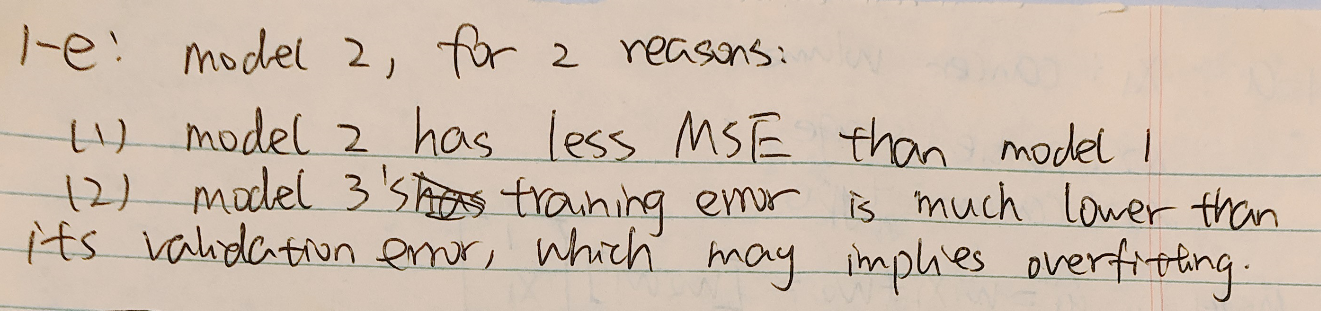 1-e: model 2, for 2 reasons:
(1) model 2 has less MSE than model 1
(2) model 3's training error is much lower than
its validation error, which may implies overfitting.